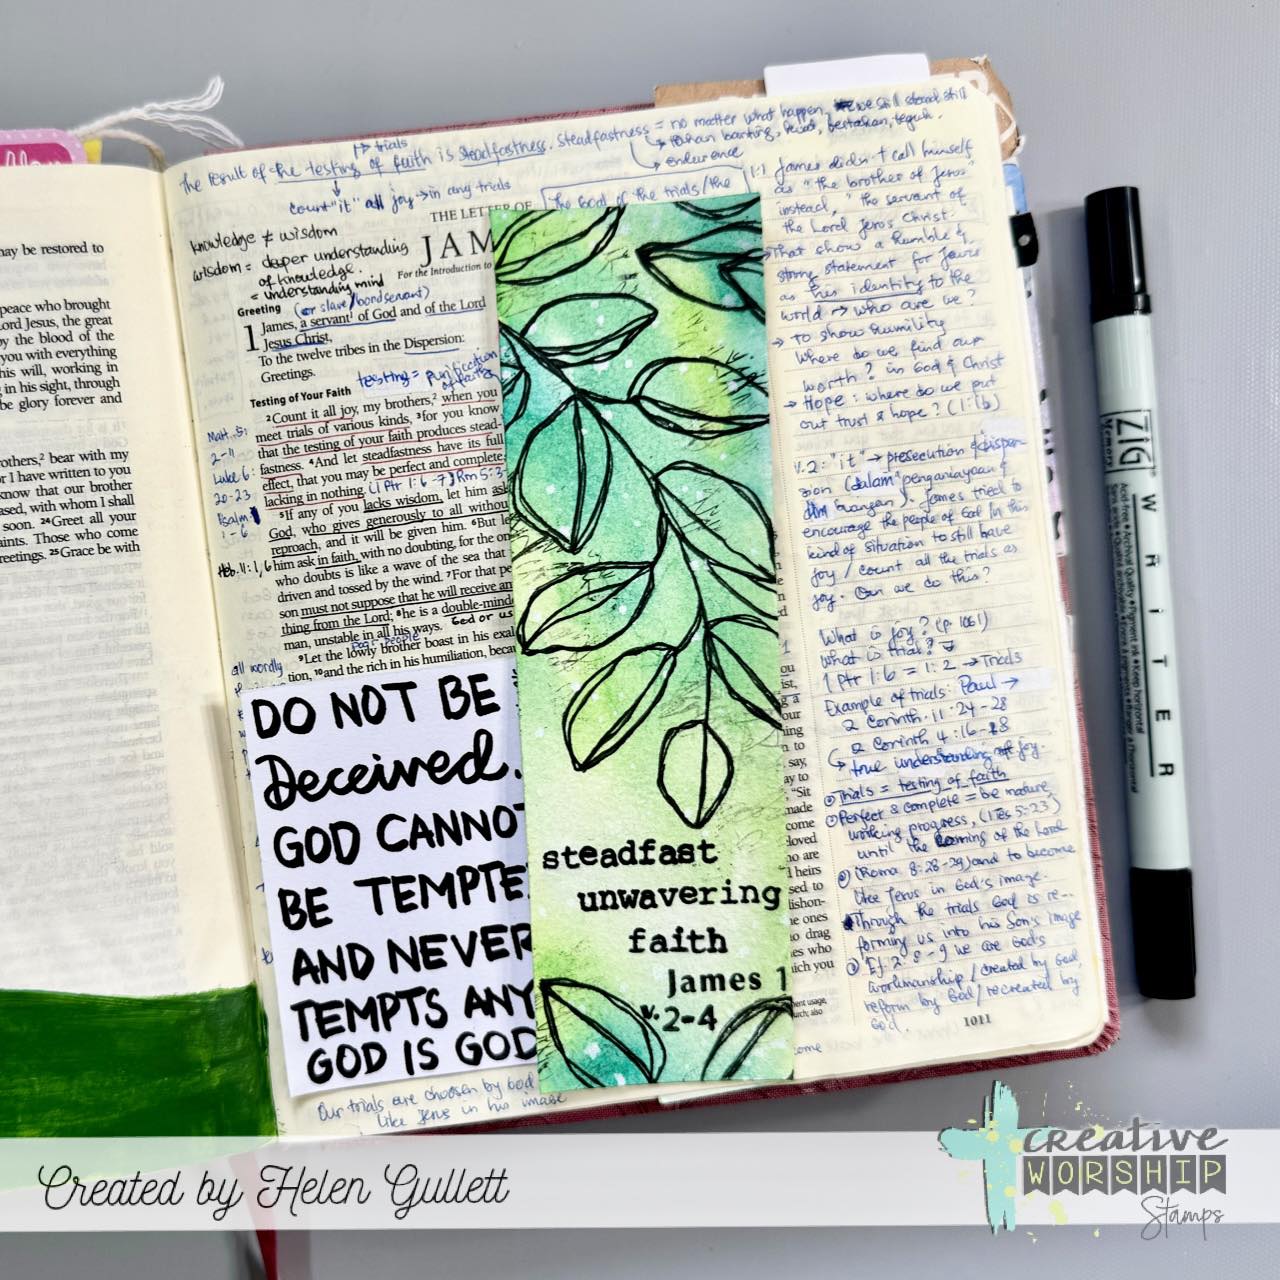 may be restored to
peace who brought
Lord Jesus, the great
by the blood of the
you with everything
his will, working in
in his sight, through
be glory forever and
bear with my
for I have written to you
know that our brother
ased, with whom I shall
soon. 24Greet all your
saints. Those who come
reetings. 25Grace be with
↱ trials
The result of the testing of faith is steadfastness. steadfastness = no matter what happen, we still stand still
→ tahan banting, kuat, bertahan, teguh.
→ endurance
count "it" all joy → in any trials
The God of the trials/the
knowledge ≠ wisdom
wisdom = deeper understanding
of knowledge.
= understanding mind
THE LETTER OF
JAM
For the Introduction to
Greeting (or slave/bondservant)
1 James, a servant1 of God and of the Lord
Jesus Christ,
To the twelve tribes in the Dispersion:
Greetings.
testing = purification
of faith
Testing of Your Faith
2Count it all joy, my brothers,2 when you
meet trials of various kinds, 3for you know
that the testing of your faith produces stead-
fastness. 4And let steadfastness have its full
effect, that you may be perfect and complete,
lacking in nothing. (1 Ptr 1:6-7) Rm 5:3
5If any of you lacks wisdom, let him ask
God, who gives generously to all without
reproach, and it will be given him. 6But let
him ask in faith, with no doubting, for the one
who doubts is like a wave of the sea that
driven and tossed by the wind. 7For that per
son must not suppose that he will receive any
thing from the Lord; 8he is a double-minde
man, unstable in all his ways. God or us
poor people
9Let the lowly brother boast in his exal
tion, 10and the rich in his humiliation, because
Matt. 5:
2-11
Luke 6:
20-23
Psalm 1
1-6
Heb. 11:1,6
all wordly
DO NOT BE
Deceived.
GOD CANNOT
BE TEMPTE
AND NEVER
TEMPTS ANY
GOD IS GOD
Our trials are choosen by God
like Jesus in his image
steadfast
unwavering
faith
James 1
v. 2-4
1:1 James didn't call himself
as "the brother of Jesus"
instead, "the servant of
the Lord Jesus Christ.
→ That show a humble &
strong statement for James
as his identity to the
world → who are we?
→ to show humility
Where do we find our
worth? in God & Christ
→ Hope: where do we put
our trust & hope? (1:1b)
v.2: "it" → presecution & disper-
sion (dalam penganiayaan &
buangan). James tried to
encourage the people of God in this
kind of situation to still have
joy / count all the trials as
joy. Can we do this?
What is joy? (p 1061)
what is trial?
1 Ptr 1:6 = 1:2 → Trials
Example of trials: Paul →
2 Corinth. 11:24-28
2 Corinth 4:16-18
↳ true understanding of joy.
Trials = testing of faith
Perfect & complete = be mature,
working progress, (1 Tes 5:23)
until the coming of the Lord
(Roma 8:28-29) and to become
like Jesus in God's image.
Through the trials God is re-
forming us into his Son's image
Ef. 2:8-9 we are God's
workmanship / created by God,
reform by God / recreated by
God.
1011
ZIG
Memory
WRITER
Acid-free • Archival Quality • Pigment ink • Keep horizontal
Created by Helen Gullett
creative
WORSHIP
Stamps